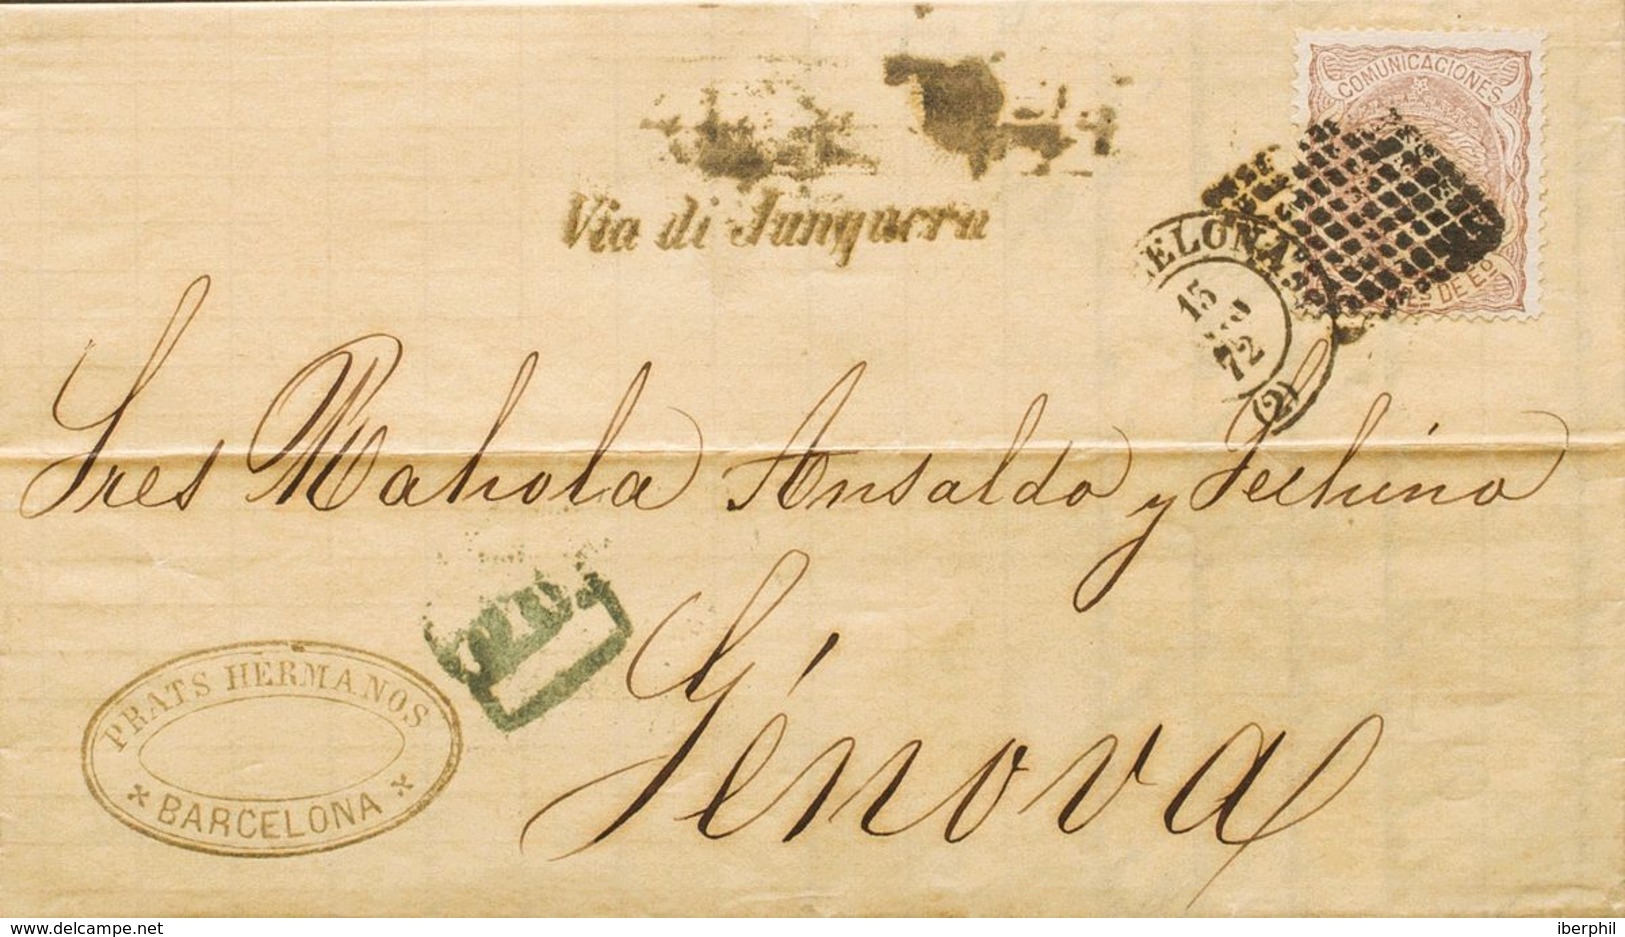 COMUNICACIONES
ES DE Eº
Via di Junquera
ELONA
15
72
(2)
Sres Mahola Ansaldo y Fechino
P.D.
Génova
PRATS HERMANOS
BARCELONA
delcampe.net
iberphil